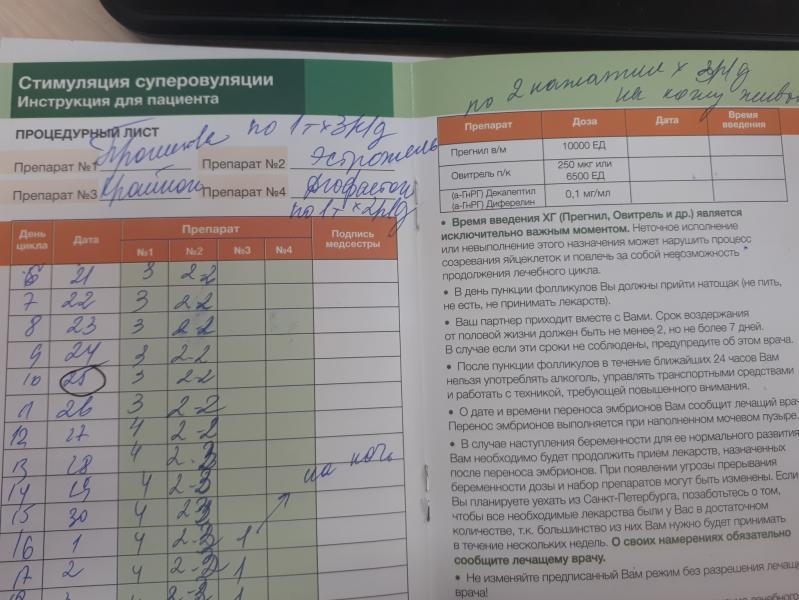 Стимуляция суперовуляции
Инструкция для пациента
ПРОЦЕДУРНЫЙ ЛИСТ
по 1т х 3р/д
Препарат №1 Препарат №2 Эстрожель
Препарат №3 Крайнон Препарат №4
по 1т х 2р/д
День цикла Дата Препарат Подпись медсестры
№1 №2 №3 №4
6 21 3 2-2
7 22 3 2-2
8 23 3 2-2
9 24 3 2-2
10 25 3 2-2
11 26 3 2-2
12 27 4 2-2
13 28 4 2-3
14 29 4 2-3
15 30 4 2-3
на ночь
16 1 4 2-3 1
17 2 4 2-3 1
по 2 нажатия х 3р/д
на кожу живо
Препарат Доза Дата Время введения
Прегнил в/м 10000 ЕД
Овитрель п/к 250 мкг или 6500 ЕД
(а-ГнРГ) Декапептил
(а-ГнРГ) Диферелин 0,1 мг/мл
• Время введения ХГ (Прегнил, Овитрель и др.) является
исключительно важным моментом. Неточное исполнение
или невыполнение этого назначения может нарушить процесс
созревания яйцеклеток и повлечь за собой невозможность
продолжения лечебного цикла.
• В день пункции фолликулов Вы должны прийти натощак (не пить,
не есть, не принимать лекарств).
• Ваш партнер приходит вместе с Вами. Срок воздержания
от половой жизни должен быть не менее 2, но не более 7 дней.
В случае если эти сроки не соблюдены, предупредите об этом врача.
• После пункции фолликулов в течение ближайших 24 часов Вам
нельзя употреблять алкоголь, управлять транспортными средствами
и работать с техникой, требующей повышенного внимания.
• О дате и времени переноса эмбрионов Вам сообщит лечащий врач
Перенос эмбрионов выполняется при наполненном мочевом пузыре.
• В случае наступления беременности для ее нормального развития
Вам необходимо будет продолжить прием лекарств, назначенных
после переноса эмбрионов. При появлении угрозы прерывания
беременности дозы и набор препаратов могут быть изменены. Если
Вы планируете уехать из Санкт-Петербурга, позаботьтесь о том,
чтобы все необходимые лекарства были у Вас в достаточном
количестве, т.к. большинство из них Вам нужно будет принимать
в течение нескольких недель. О своих намерениях обязательно
сообщите лечащему врачу.
• Не изменяйте предписанный Вам режим без разрешения лечаще
врача!